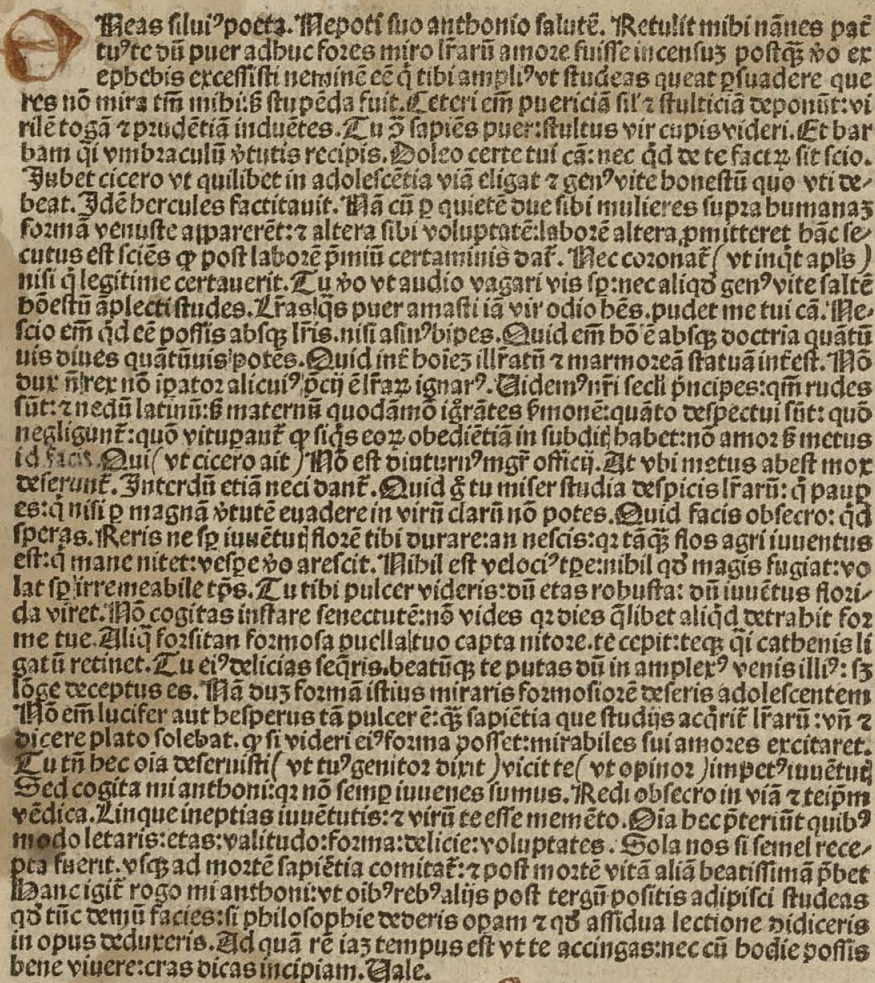 ENeas silui⁹ poeta. Nepoti suo anthonio salutē. Retulit mihi nānes pat̄
tu⁹ te dū puer adhuc fores miro lr̄arū amore fuisse incensuȝ postqȝ̄ v̄o ex
ephebis excessisti neminē eē q̄ tibi ampli⁹ vt studeas queat ꝑsuadere que
res nō mira tm̄ mihi: sȝ stupēda fuit. Ceteri em̄ puericiā sil' ⁊ stulticiā deponūt: vi
rilē togā ⁊ prudētiā induētes. Tu ꝓ sapiēs puer: stultus vir cupis videri. Et bar
bam q̄i vmbraculū v̄tutis recipis. Doleo certe tui cā: nec qd̄ de te factꝝ sit scio.
Jubet cicero vt quilibet in adolescētia viā eligat ⁊ gen⁹ vite honestū quo vti de⸗
beat. Jdē hercules factitauit. Nā cū ꝑ quietē due sibi mulieres supra humanaȝ
formā venuste apparerēt: ⁊ altera sibi voluptatē: laborē altera ꝓmitteret hāc se⸗
cutus est sciēs ꝙ post laborē p̄miū certaminis dat̄. Nec coronat̄ ( vt inq̄t apl̄s )
nisi q̄ legitime certauerit. Tu v̄o vt audio vagari vis sꝑ: nec aliqd̄ gen⁹ vite saltē
hōestū āplecti studes. Lr̄as q̄s puer amasti iā vir odio hēs. pudet me tui cā. Ne⸗
scio em̄ qd̄ eē possis absqȝ lr̄is. nisi asin⁹ bipes. Quid em̄ hō ē absqȝ doctria quātū
uis diues quātūuis potēs. Quid int̄ hoīeȝ illr̄atū ⁊ marmoreā statuā int̄est. Nō
dux n̄ rex nō īpator alicui⁹ p̄cij ē lr̄aꝝ ignar⁹. Uidem⁹ nr̄i secli p̄ncipes: qm̄ rudes
sūt: ⁊ nedū latinū: sȝ maternū quodāmō igr̄ātes ẜmonē: quāto despectui sūt: quō
negligunt̄: quō vituꝑant̄ ꝙ siq̄s eoꝝ obediētiā in subditꝭ habet: nō amor sȝ metus
id facit. Qui ( vt cicero ait ) Nō est diuturn⁹ mgr̄ officij. At vbi metus abest mox
deserunt̄. Jnterdū etiā neci dant̄. Quid g̊ tu miser studia despicis lr̄arū: q̄ pauꝑ
es: q̄ nisi ꝑ magnā v̄tutē euadere in virū clarū nō potes. Quid facis obsecro: qd̄
speras. Reris ne sꝑ iuuētutꝭ florē tibi durare: an nescis: qꝛ tāqȝ̄ flos agri iuuentus
est: q̄ mane nitet: vespe v̄o arescit. Nihil est veloci⁹ tꝑe: nihil qd̄ magis fugiat: vo
lat sꝑ irremeabile tp̄s. Tu tibi pulcer videris: dū etas robusta: dū iuuētus flori⸗
da viret. Nō cogitas instare senectutē: nō vides qꝛ dies q̄libet aliqd̄ detrahit for
me tue. Aliq̄ forsitan formosa puella tuo capta nitore. te cepit: teqȝ q̄i cathenis li
gatū retinet. Tu ei⁹ delicias seq̄ris. beatūqȝ te putas dū in amplex⁹ venis illi⁹: sȝ
lōge deceptus es. Nā duȝ formā istius miraris formosiorē deseris adolescentem
Nō em̄ lucifer aut hesperus tā pulcer ē: qȝ̄ sapiētia que studijs acq̄rit̄ lr̄arū: vn̄ ⁊
dicere plato solebat. ꝙ si videri ei⁹ forma posset: mirabiles sui amores excitaret.
Tu tn̄ hec oīa deseruisti ( vt tu⁹ genitor dixit ) vicit te ( vt opinor ) impet⁹ iuuētutꝭ
Sed cogita mi anthoni: qꝛ nō semꝑ iuuenes sumus. Redi obsecro in viā ⁊ teip̄m
vēdica. Linque ineptias iuuētutis: ⁊ virū te esse memēto. Oīa hec p̄teriūt quib⁹
modo letaris: etas: valitudo: forma: delicie: voluptates. Sola nos si semel rece⸗
pta fuerit. vsqȝ ad mortē sapiētia comitat̄: ⁊ post mortē vitā aliā beatissimā p̄bet
Hanc igit̄ rogo mi anthoni: vt oīb⁹ reb⁹ alijs post tergū positis adipisci studeas
qd̄ tūc demū facies: si philosophie dederis oꝑam ⁊ qd̄ assidua lectione didiceris
in opus deduxeris. Ad quā rē iaȝ tempus est vt te accingas: nec cū hodie possis
bene viuere: cras dicas incipiam. Uale.